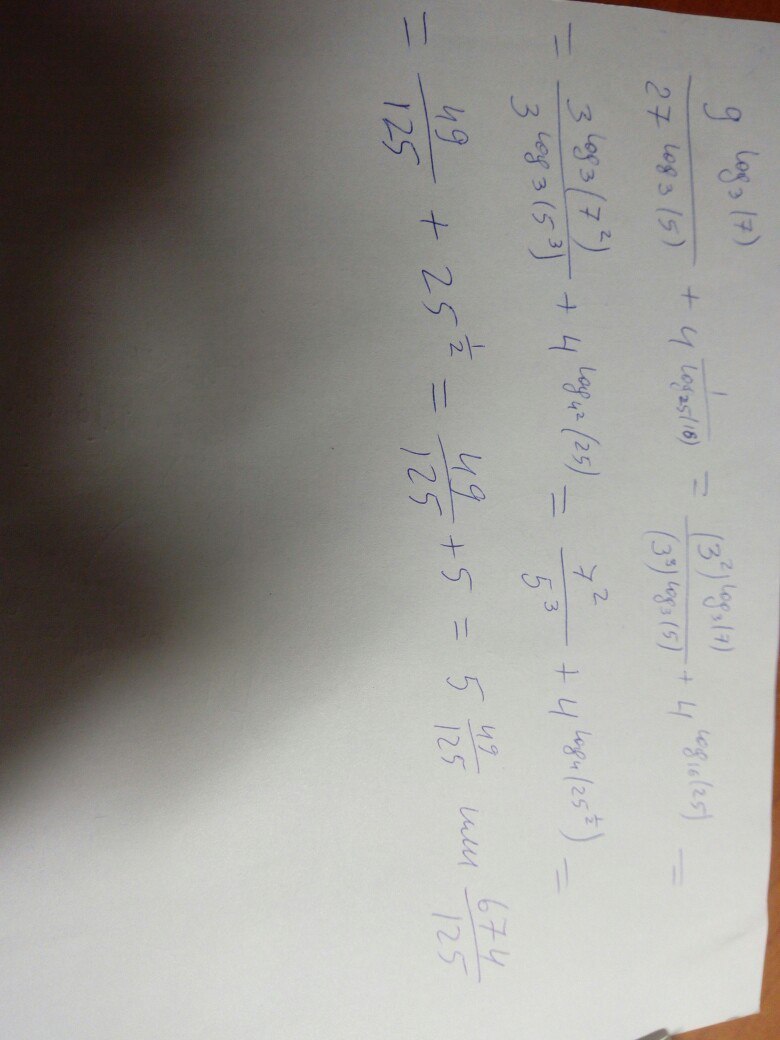 9^log₃(7) / 27^log₃(5) + 4^(1/log₂₅(16)) = (3²)^log₃(7) / (3³)^log₃(5) + 4^log₁₆(25) =
= 3^log₃(7²) / 3^log₃(5³) + 4^log₄²(25) = 7² / 5³ + 4^log₄(25^(1/2)) =
= 49/125 + 25^(1/2) = 49/125 + 5 = 5 49/125 или 674/125